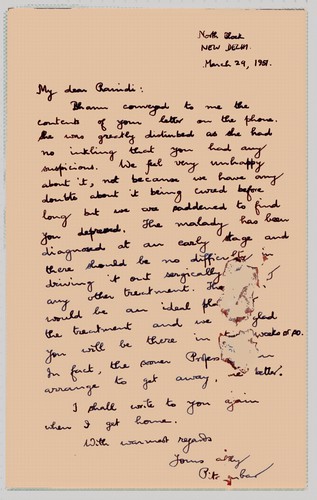 North Block
NEW DELHI.
March 24, 1981.
My dear Ravindi:
Bhanu conveyed to me the
contents of your letter on the phone.
She was greatly disturbed as she had
no inkling that you had any
suspicions. We feel very unhappy
about it, not because we have any
doubts about it being cured before
long but we are saddened to find
you depressed. The malady has been
diagnosed at an early stage and
there should be no difficulty in
driving it out surgically
any other treatment. The
would be an ideal
the treatment and we glad
you will be there in weeks or so.
In fact, the sooner
arrange to get away, better.
I shall write to you again
when I get home.
With warmest regards
Yours